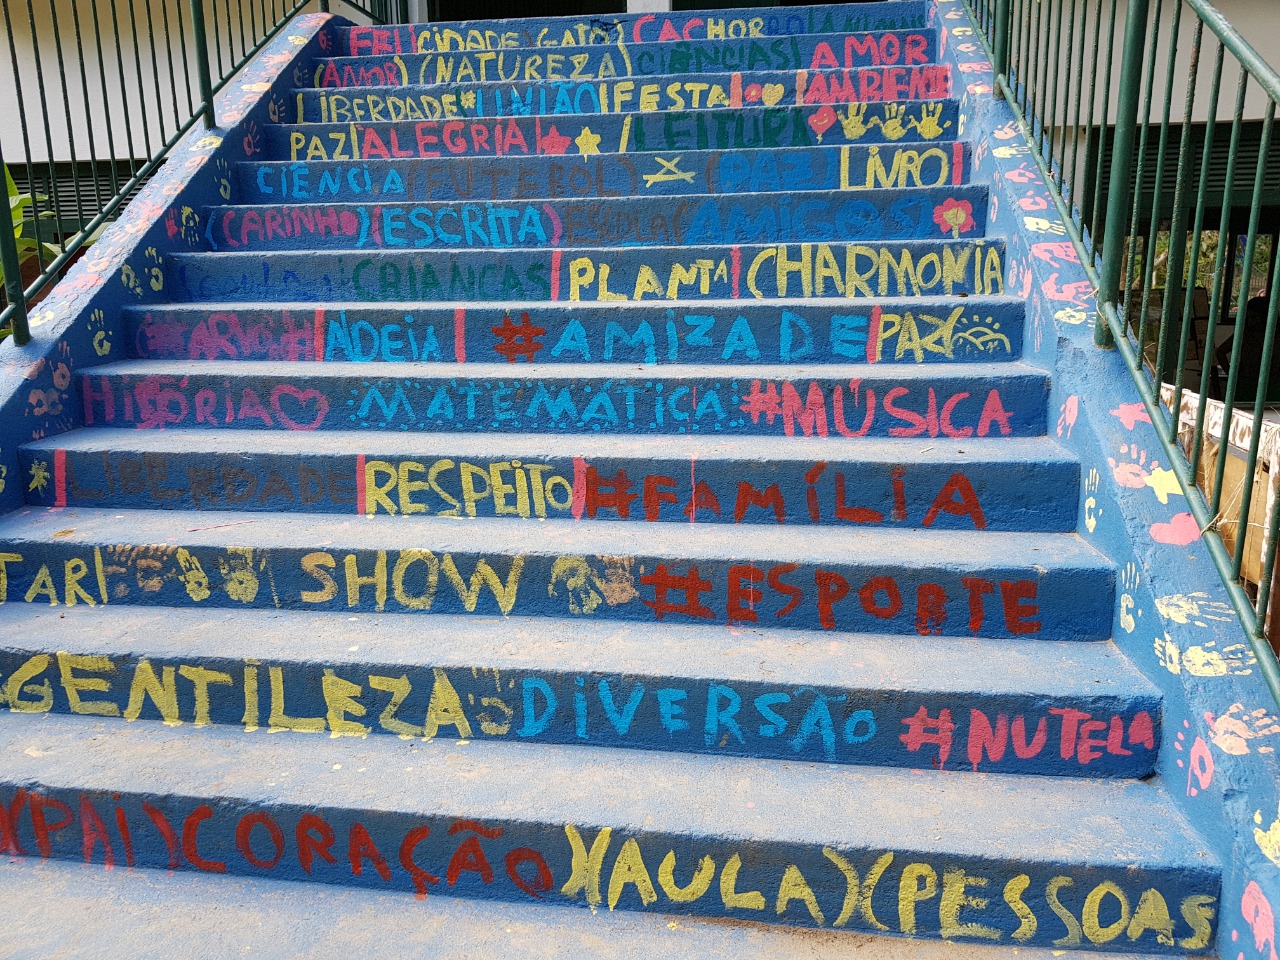 FELICIDADE) GATO) CACHORRO ANIMAIS
(AMOR) (NATUREZA) CIÊNCIAS AMOR
LIBERDADE* UNIÃO FESTA AMBIENTE
PAZ ALEGRIA LEITURA
CIÊNCIA (FUTEBOL) (PAZ) LIVRO
(CARINHO) (ESCRITA) ESCOLA (AMIGOS)
CRIANCAS PLANTA (HARMONIA
ANDEIA #AMIZADE PAZ
HISTÓRIA MATEMÁTICA #MÚSICA
LIBERDADE RESPEITO #FAMÍLIA
TAR SHOW #ESPORTE
GENTILEZA DIVERSÃO #NUTELA
(PAI) CORAÇÃO (AULA) (PESSOAS